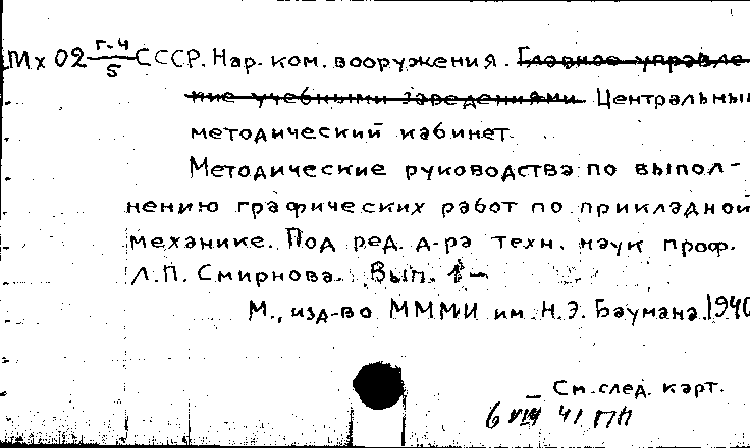 Мх 02 г-4/5 СССР. Нар. ком. вооружения. Главное управле-
ние учебными заведениями. Центральный
методический кабинет.
Методические руководства по выпол-
нению графических работ по прикладной
механике. Под ред. д-ра техн. наук проф.
Л.П. Смирнова. Вып. 1-
М., изд-во ММMИ им. Н.Э. Баумана. 1940
См. след. карт.
6 VIII 41 ПП